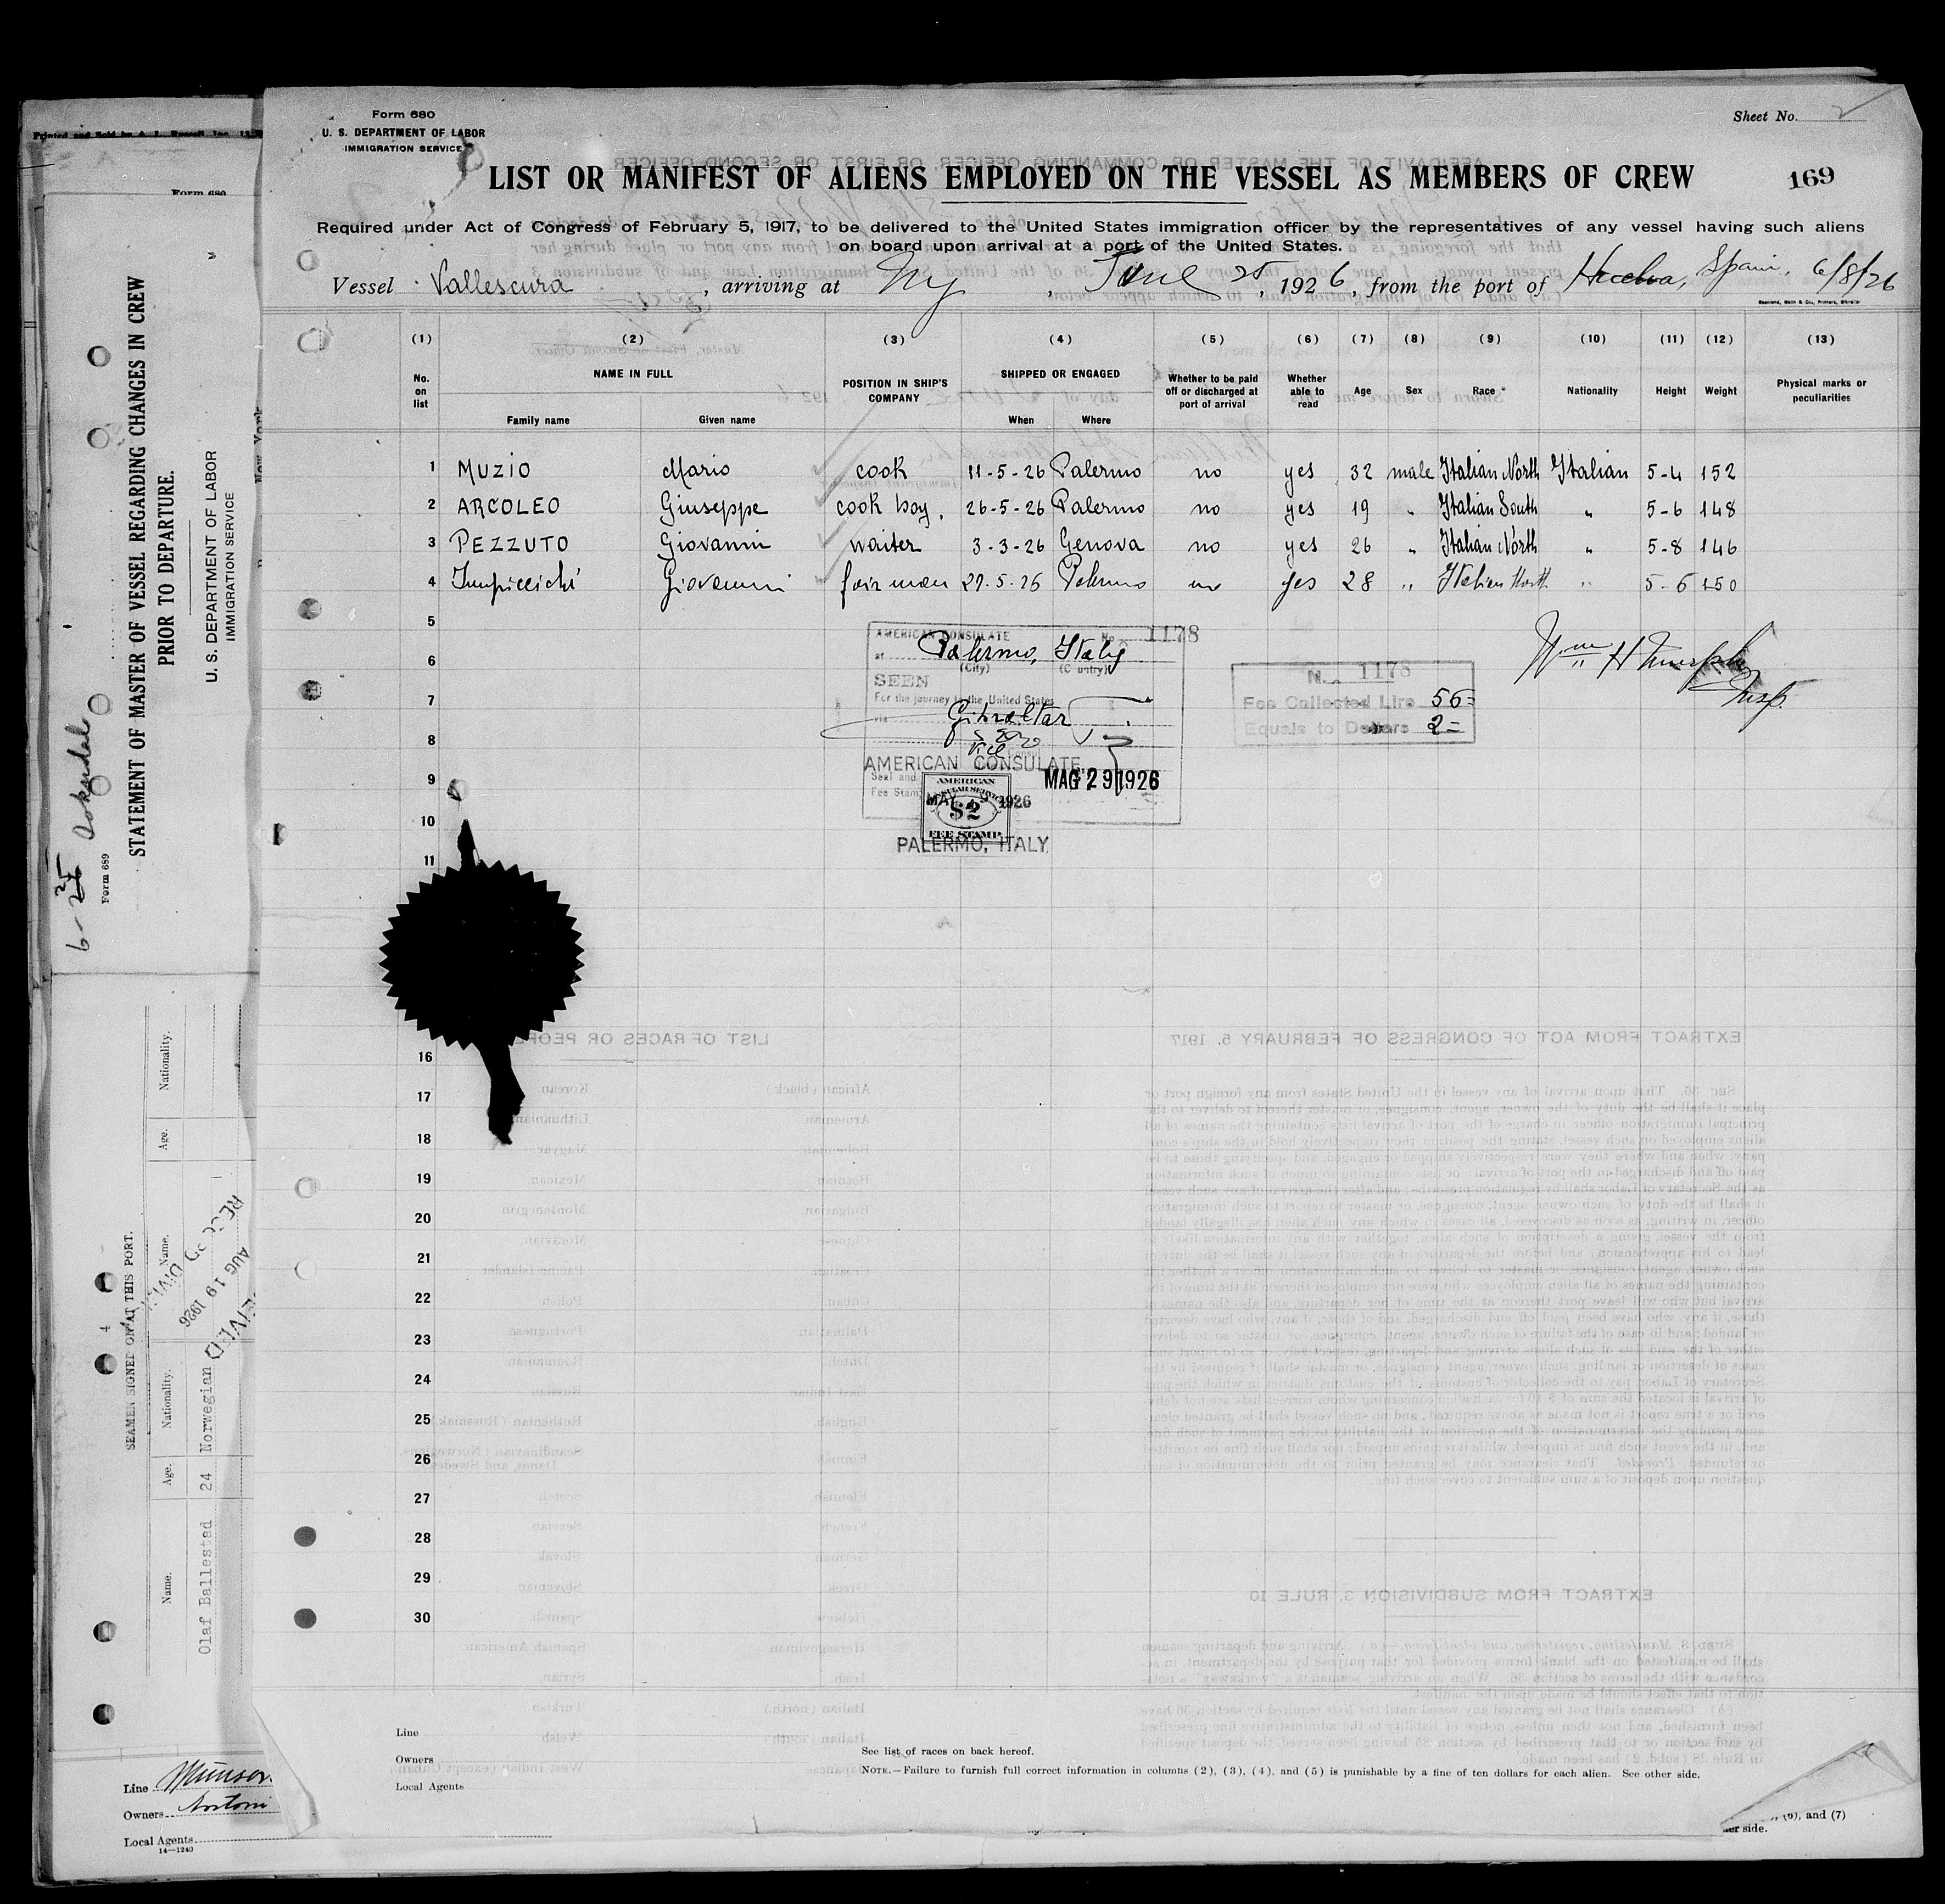 Form 680
U. S. DEPARTMENT OF LABOR
IMMIGRATION SERVICE
Sheet No. 2
LIST OR MANIFEST OF ALIENS EMPLOYED ON THE VESSEL AS MEMBERS OF CREW
169
Required under Act of Congress of February 5, 1917, to be delivered to the United States immigration officer by the representatives of any vessel having such aliens
on board upon arrival at a port of the United States.
Vessel Vallescura, arriving at Ny, June 25, 1926, from the port of Huelva, Spain, 6/8/26
(1) (2) (3) (4) (5) (6) (7) (8) (9) (10) (11) (12) (13)
No. on list NAME IN FULL Family name Given name POSITION IN SHIP'S COMPANY SHIPPED OR ENGAGED When Where Whether to be paid off or discharged at port of arrival Whether able to read Age Sex Race Nationality Height Weight Physical marks or peculiarities
1 MUZIO Mario cook 11-5-26 Palermo no yes 32 male Italian North Italian 5-4 152
2 ARCOLEO Giuseppe cook boy. 26-5-26 Palermo no yes 19 " Italian South " 5-6 148
3 PEZZUTO Giovanni waiter 3-3-26 Genova no yes 26 " Italian North " 5-8 146
4 Giovanni 27-5-26 Palermo no yes 28 " Italian North " 5-6 150
5
6
7
8
9
10
11
16
17
18
19
20
21
22
23
24
25
26
27
28
29
30
AMERICAN CONSULATE No. 1178
at Palermo, Italy
(City) (Country)
SEEN
For the journey to the United States
via Gibraltar
Vice Consul
AMERICAN CONSULATE
Seal and
Fee Stamp
MAG 29 1926
AMERICAN
CONSULAR SERVICE
$2
FEE STAMP
PALERMO, ITALY
No. 1178
Fee Collected Lire 56=
Equals to Dollars 2=
Wm H Murphy
Insp.
Line
Owners
Local Agents
See list of races on back hereof.
NOTE.—Failure to furnish full correct information in columns (2), (3), (4), and (5) is punishable by a fine of ten dollars for each alien. See other side.
(6), and (7)
her side.
Printed and Sold by
Form 680
STATEMENT OF MASTER OF VESSEL REGARDING CHANGES IN CREW
PRIOR TO DEPARTURE.
U. S. DEPARTMENT OF LABOR
IMMIGRATION SERVICE
Form 689
6-25
SEAMEN SIGNED ON AT THIS PORT.
Name. Age. Nationality. Name. Age. Nationality.
Olaf Ballestad 24 Norwegian
RECEIVED
AUG 19 1926
Line Munson
Owners
Local Agents
14—1240